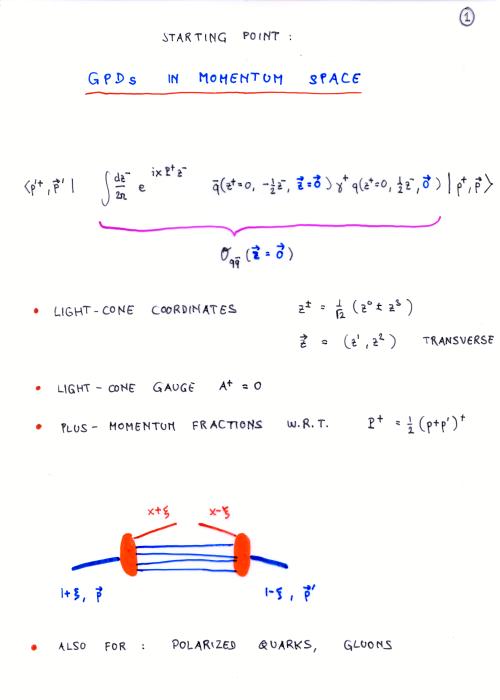 1
STARTING POINT :
GPDs IN MOMENTUM SPACE
⟨p'⁺, p⃗' | ∫ dz⁻/2π e^{ixP⁺z⁻} q̄(z⁺=0, -½z⁻, z⃗=0⃗) γ⁺ q(z⁺=0, ½z⁻, 0⃗) | p⁺, p⃗⟩
O_{qq̄} (z⃗ = 0⃗)
• LIGHT-CONE COORDINATES z^± = 1/√2 (z⁰ ± z³)
z⃗ = (z¹, z²) TRANSVERSE
• LIGHT-CONE GAUGE A⁺ = 0
• PLUS-MOMENTUM FRACTIONS W.R.T. P⁺ = ½ (p+p')⁺
x+ξ x-ξ
1+ξ, p⃗ 1-ξ, p⃗'
• ALSO FOR : POLARIZED QUARKS, GLUONS